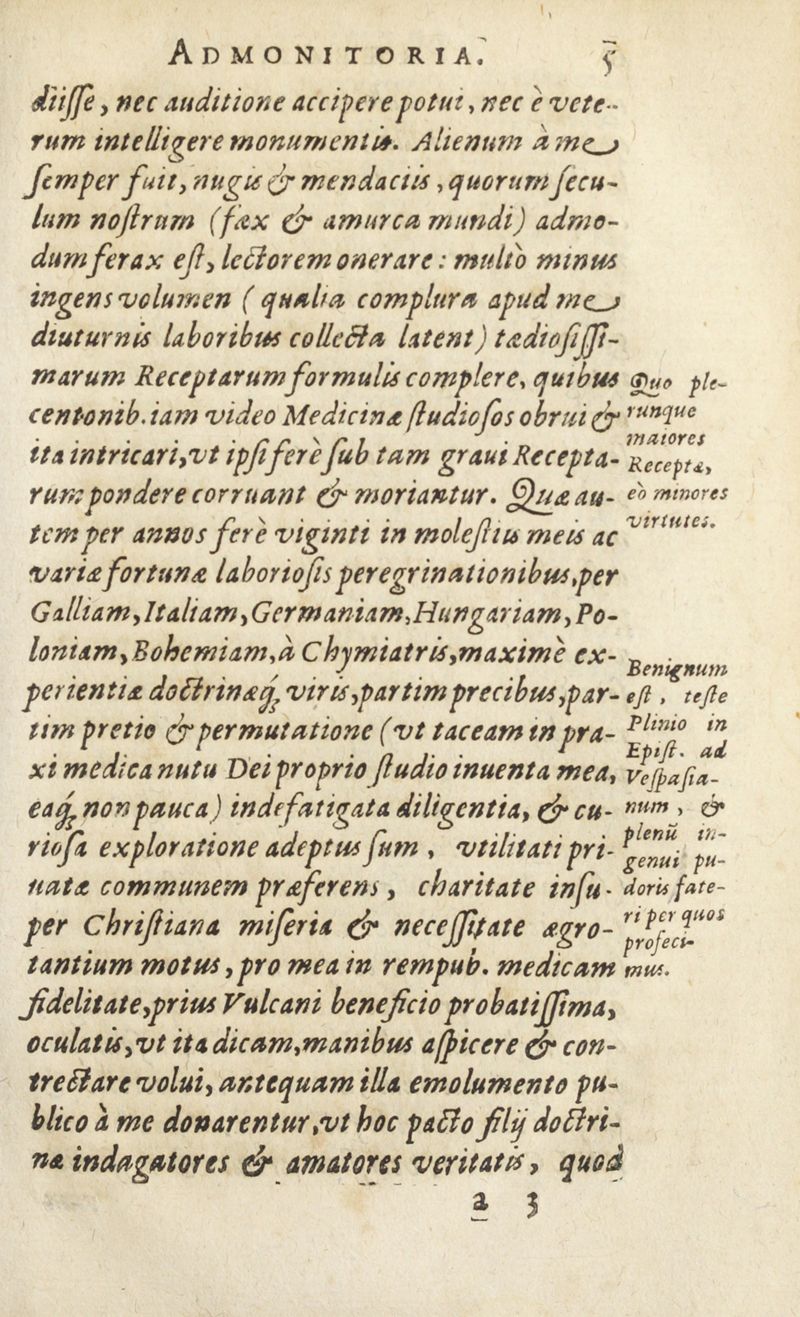 ADMONITORIA. 5
diiſſe, nec auditione accipere potui, nec è vete-
rum intelligere monumentis. Alienum à me
ſemper fuit, nugis & mendaciis, quorum ſecu-
lum noſtrum (fæx & amurca mundi) admo-
dum ferax eſt, lectorem onerare: multò minus
ingens volumen (qualia complura apud me
diuturnis laboribus collecta latent) tædioſiſſi-
marum Receptarum formulis complere, quibus
centonib. iam video Medicinæ ſtudioſos obrui &
ita intricari, vt ipſi ferè ſub tam graui Recepta-
rum pondere corruant & moriantur. Quæ au-
tem per annos ferè viginti in moleſtiis meis ac
variæ fortunæ laborioſis peregrinationibus, per
Galliam, Italiam, Germaniam, Hungariam, Po-
loniam, Bohemiam, à Chymiatris, maximè ex-
perientiæ doctrinæq; viris, partim precibus, par-
tim pretio & permutatione (vt taceam in pra-
xi medica nutu Dei proprio ſtudio inuenta mea,
eaq; non pauca) indefatigata diligentia, & cu-
rioſa exploratione adeptus ſum, vtilitati pri-
uatæ communem præferens, charitate inſu-
per Chriſtiana miſeria & neceſſitate ægro-
tantium motus, pro mea in rempub. medicam
fidelitate, prius Vulcani beneficio probatiſſima,
oculatis, vt ita dicam, manibus aſpicere & con-
trectare volui, antequam illa emolumento pu-
blico à me donarentur, vt hoc pacto filij doctri-
næ indagatores & amatores veritatis, quod
a 3
Quo ple-
runque
maiores
Receptæ,
eò minores
virtutes.
Benignum
eſt, teſte
Plinio in
Epiſt. ad
Veſpaſia-
num, &
plenũ in-
genui pu-
doris fate-
ri per quos
profeci-
mus.